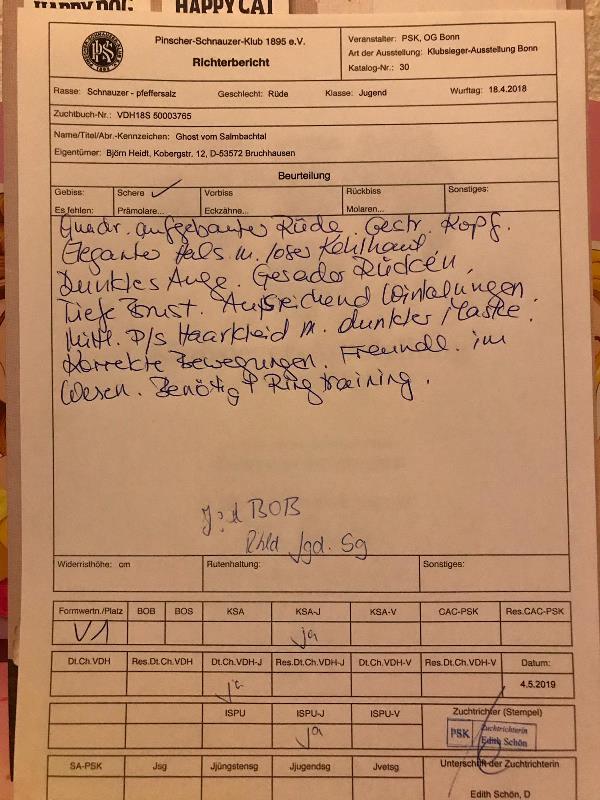 HAPPY DOG
HAPPY CAT
PSK
1895
Pinscher-Schnauzer-Klub 1895 e.V.
Richterbericht
Veranstalter: PSK, OG Bonn
Art der Ausstellung: Klubsieger-Ausstellung Bonn
Katalog-Nr.: 30
Rasse: Schnauzer - pfeffersalz Geschlecht: Rüde Klasse: Jugend Wurftag: 18.4.2018
Zuchtbuch-Nr.: VDH18S 50003765
Name/Titel/Abr.-Kennzeichen: Ghost vom Salmbachtal
Eigentümer: Björn Heidt, Kobergstr. 12, D-53572 Bruchhausen
Beurteilung
Gebiss: Schere ✓ Vorbiss Rückbiss Sonstiges:
Es fehlen: Prämolare... Eckzähne... Molaren...
Quadr. aufgebauter Rüde. Gestr. Kopf.
Eleganter Hals m. loser Kehlhaut.
Dunkles Auge. Gerader Rücken.
Tiefe Brust. Ausreichend Winkelungen.
Mittl. P/S Haarkleid m. dunkler Maske.
Korrekte Bewegungen. Freundl. im
Wesen. Benötigt Ringtraining.
BOB
Rhld Jgd. Sg
Widerristhöhe: cm Rutenhaltung: Sonstiges:
Formwertn./Platz BOB BOS KSA KSA-J KSA-V CAC-PSK Res.CAC-PSK
V1 ja
Dt.Ch.VDH Res.Dt.Ch.VDH Dt.Ch.VDH-J Res.Dt.Ch.VDH-J Dt.Ch.VDH-V Res.Dt.Ch.VDH-V Datum:
ja 4.5.2019
ISPU ISPU-J ISPU-V Zuchtrichter (Stempel)
ja PSK Zuchtrichterin
Edith Schön
SA-PSK Jsg Jjüngstensg Jjugendsg Jvetsg Unterschrift der Zuchtrichterin
Edith Schön, D